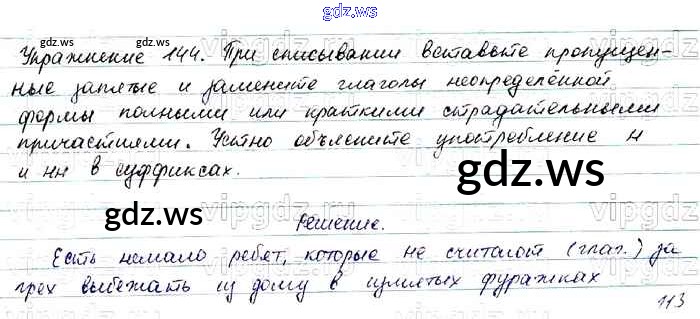 gdz.ws
gdz.ws gdz.ws
Упражнение 144. При списывании вставьте пропущен-
ные запятые и замените глаголы неопределённой
формы полными или краткими страдательными
причастиями. Устно объясните употребление н
и нн в суффиксах.
gdz.ws gdz.ws
Решение.
Есть немало ребят, которые не считают (глаг.) за
грех выбежать из дому в измятых фуражках
gdz.ws gdz.ws
113